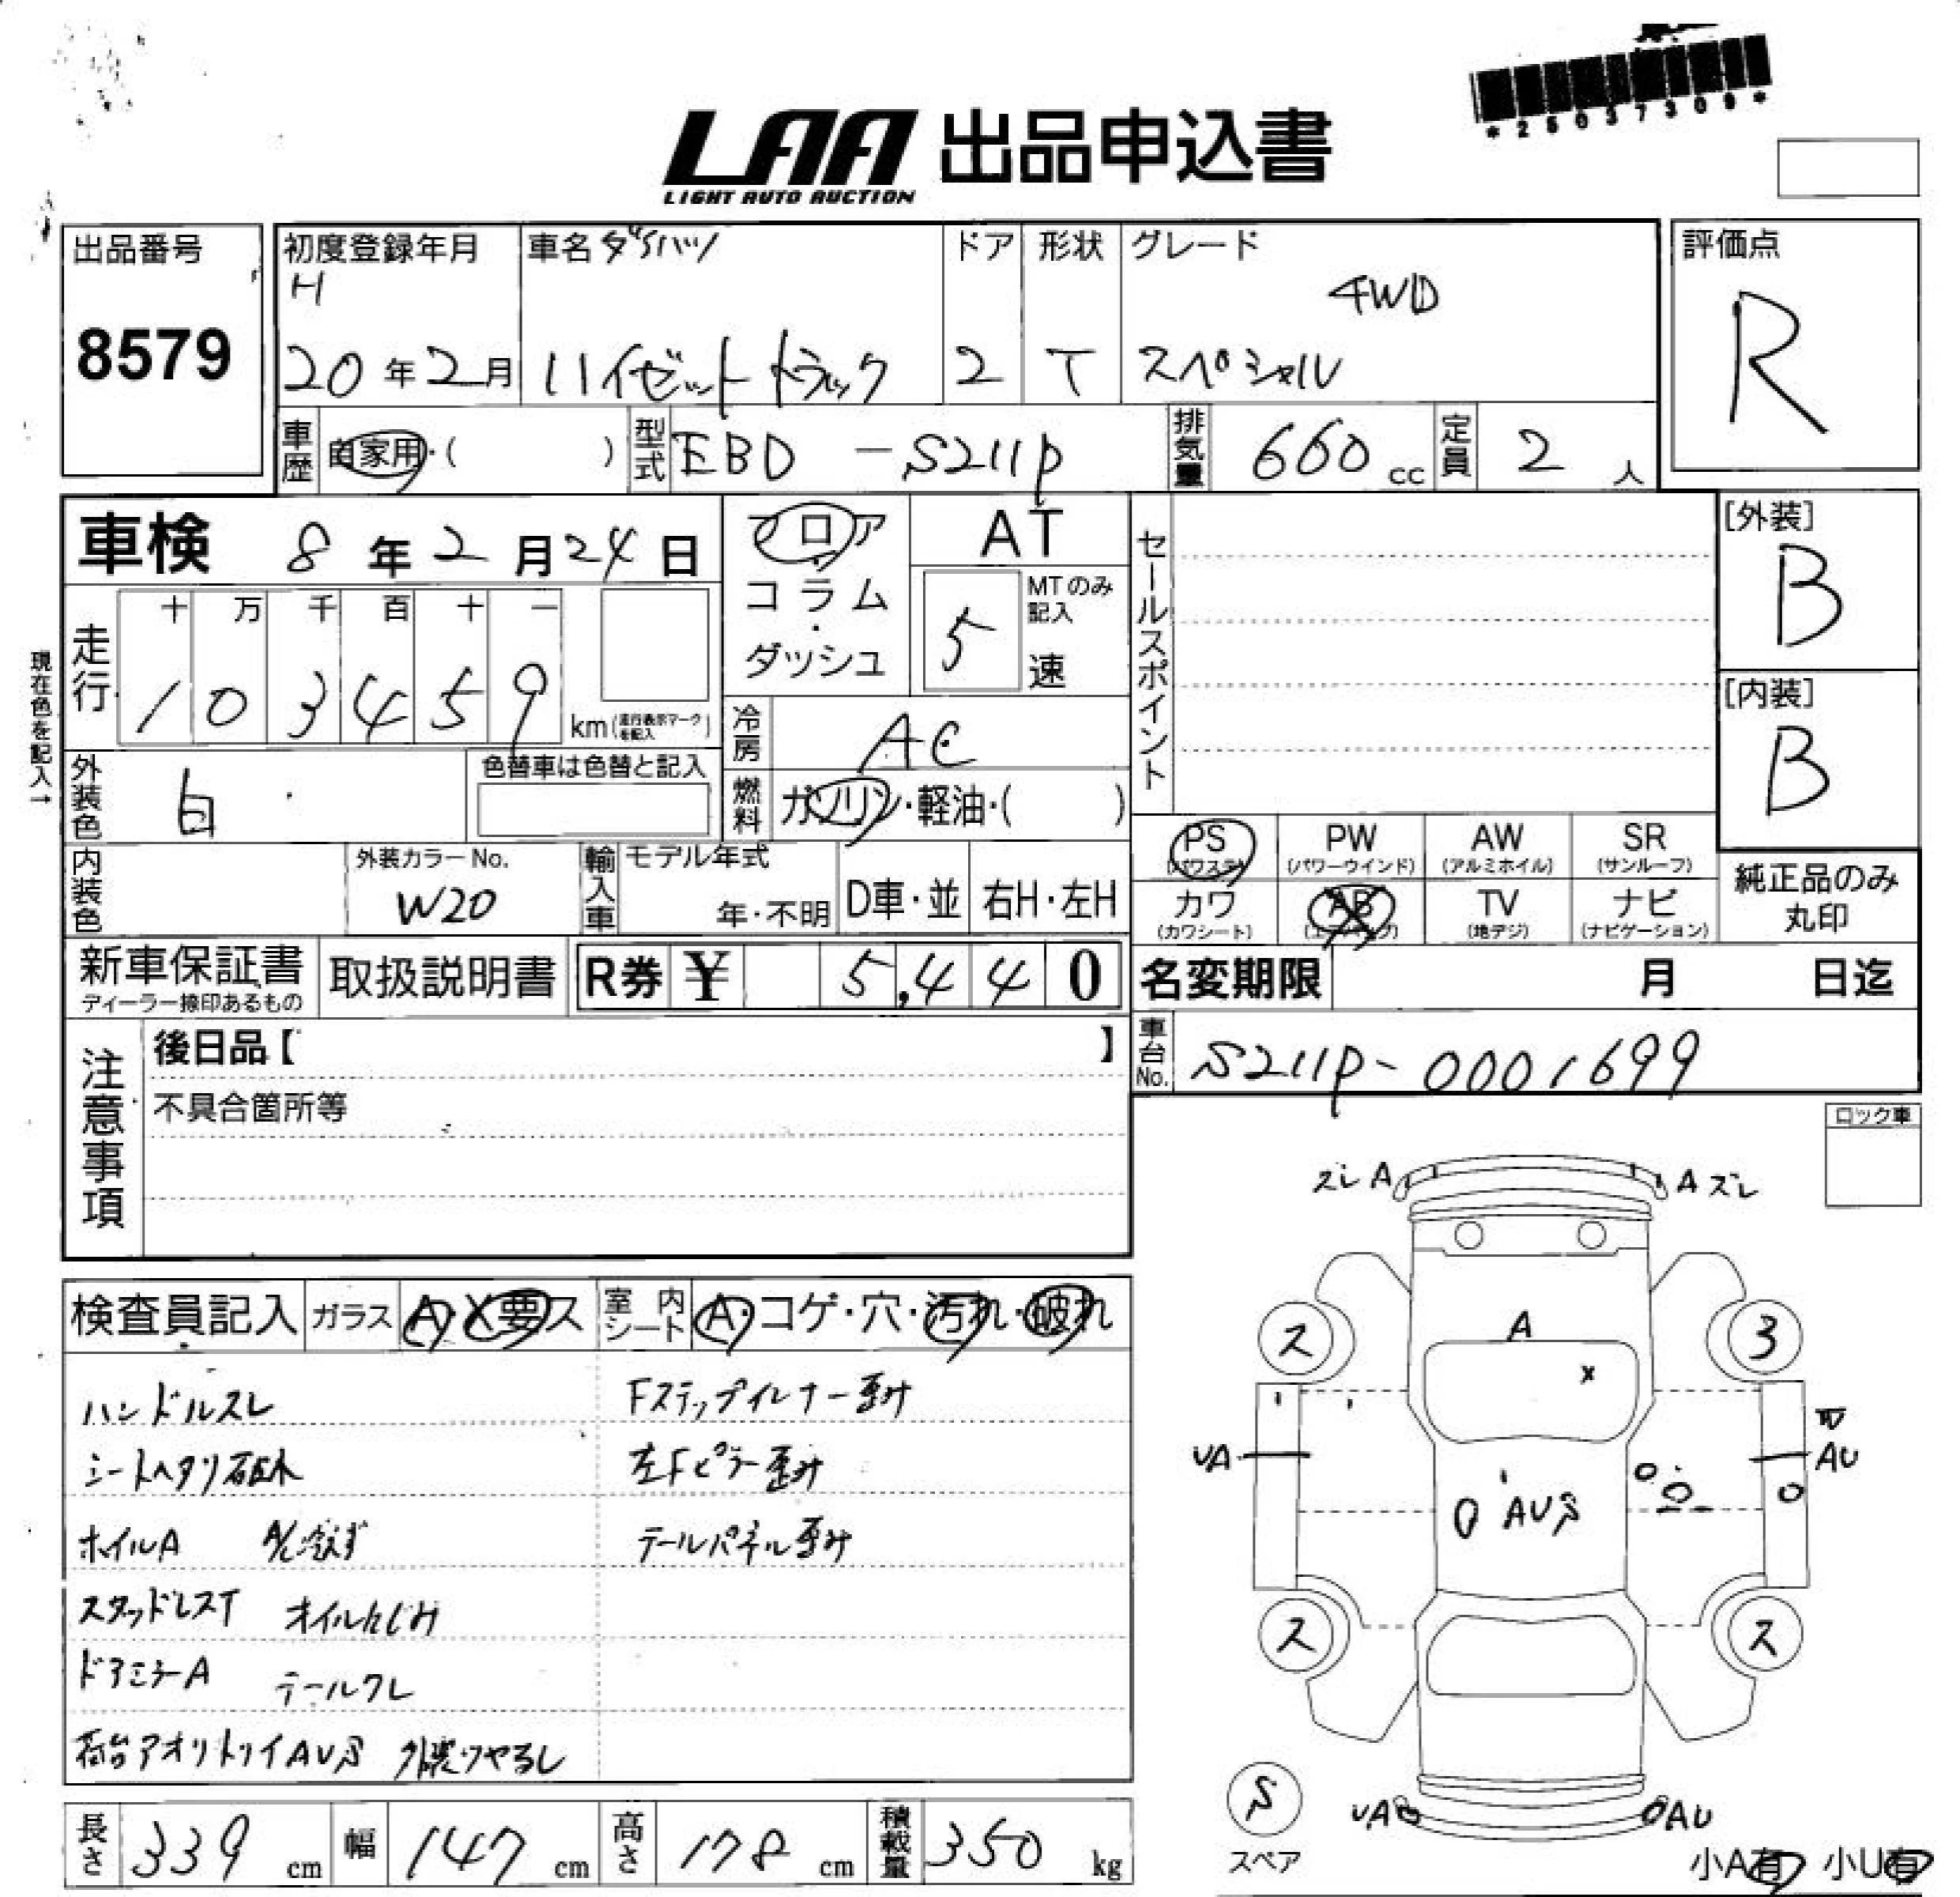 *25037309*
LAA 出品申込書
LIGHT AUTO AUCTION
出品番号
8579
初度登録年月
H
20年2月
車名 ダイハツ
ハイゼットトラック
ドア
2
形状
T
グレード
4WD
スペシャル
評価点
R
車歴 自家用・( )
型式 EBD -S211P
排気量 660 cc
定員 2 人
車検 8年2月24日
フロア
コラム
・
ダッシュ
AT
MTのみ記入
5 速
セールスポイント
[外装]
B
[内装]
B
現在色を記入→
走行
十 万 千 百 十 一
1 0 3 4 5 9
km(走行表示マークを記入)
冷房 AC
燃料 ガソリン・軽油・( )
外装色 白
色替車は色替と記入
内装色
外装カラーNo.
W20
輸入車
モデル年式
年・不明
D車・並
右H・左H
PS
(パワステ)
PW
(パワーウインド)
AW
(アルミホイル)
SR
(サンルーフ)
カワ
(カワシート)
AB
(エアバッグ)
TV
(地デジ)
ナビ
(ナビゲーション)
純正品のみ
丸印
新車保証書
ディーラー捺印あるもの
取扱説明書
R券 ¥ 5,440
名変期限 月 日迄
車台No. S211P-0001699
注意事項
後日品【 】
不具合箇所等
ロック車
検査員記入
ガラス A・X要ス
室内シート A・コゲ・穴・汚れ・破れ
ハンドルスレ
Fステップインナー歪み
シートヘタリ破れ
左Fピラー歪み
ホイルA A/C冷えず
テールパネル歪み
スタッドレスT オイルにじみ
ドアミラーA テールワレ
荷台アオリトリイAUS 外装ツヤなし
ズレ A
A ズレ
A
X
ス
3
UA
AU
AUS
ス
ス
S
スペア
UA
AU
小A有 小U有
長さ 339 cm
幅 147 cm
高さ 178 cm
積載量 350 kg